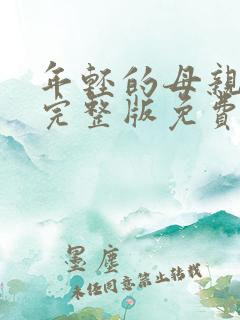 年轻的母亲
完整版免費
墨塵
未经同意禁止转载